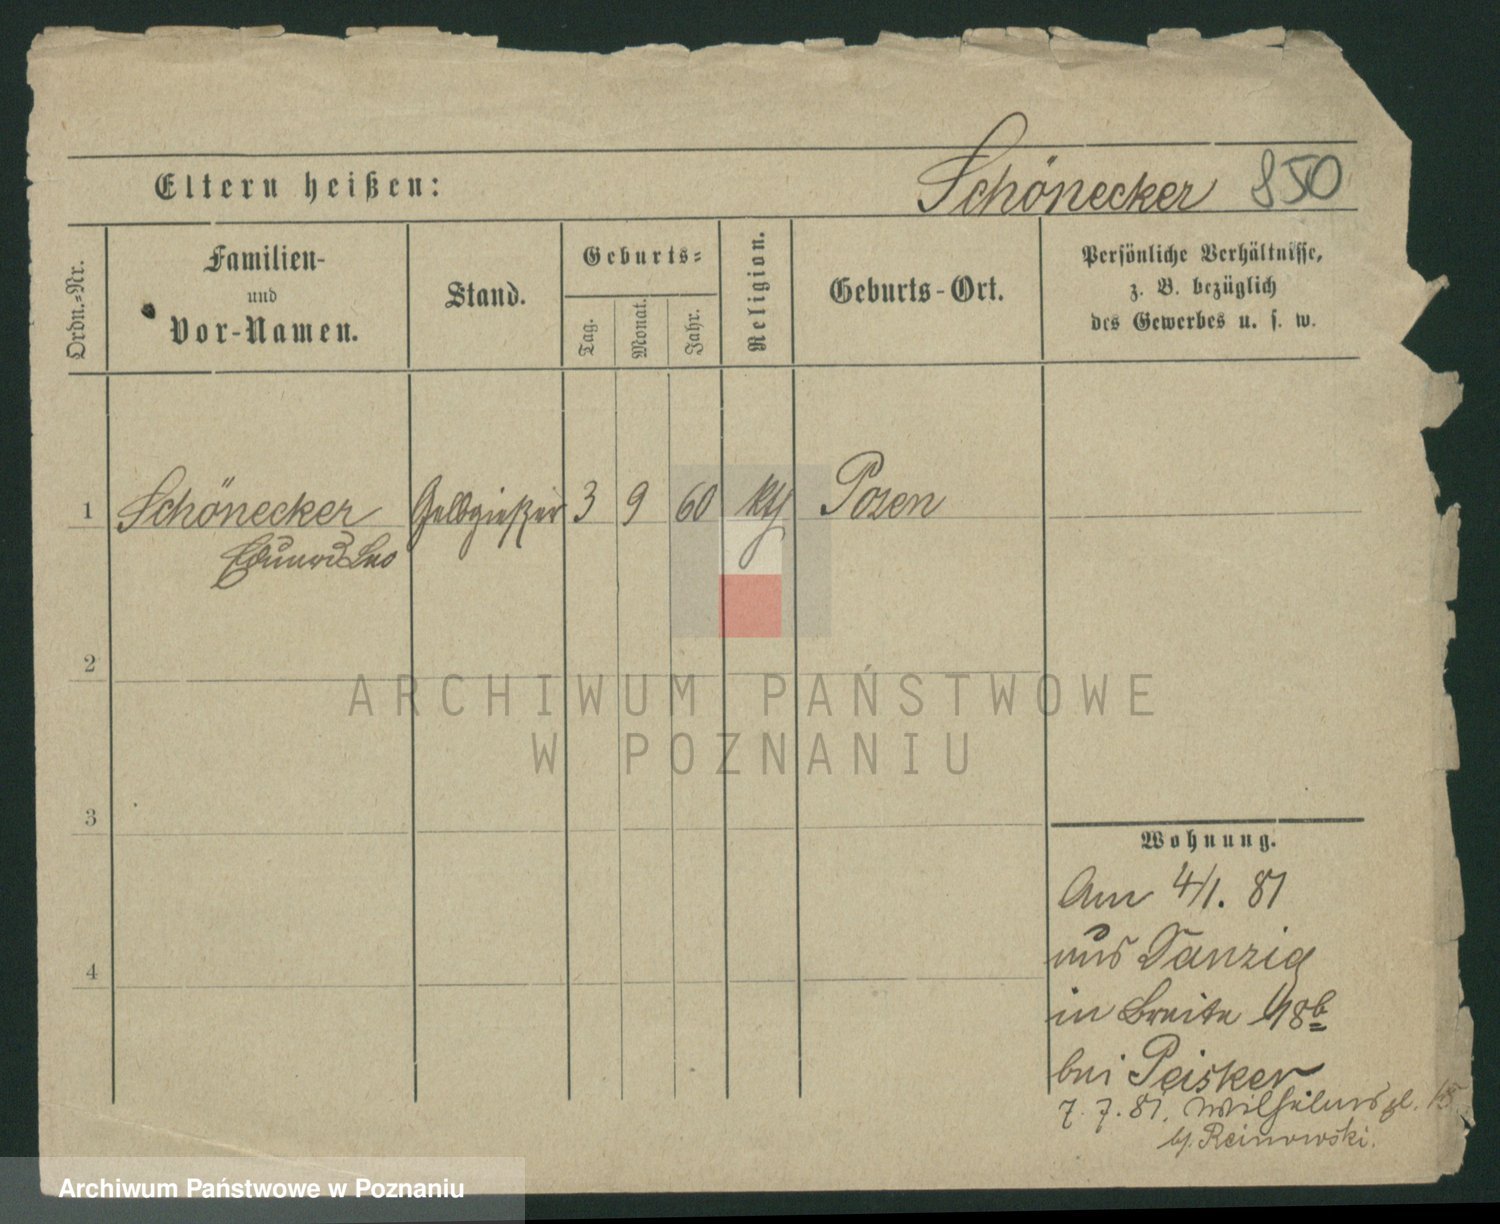 Eltern heißen: Schönecker 850
Ordn.-Nr.
Familien-
und
Vor-Namen.
Stand.
Geburts-
Tag.
Monat.
Jahr.
Religion.
Geburts-Ort.
Persönliche Verhältnisse,
z. B. bezüglich
des Gewerbes u. s. w.
1 Schönecker Gelbgießer 3 9 60 kth Posen
Eduard Leo
2
3
4
ARCHIWUM PAŃSTWOWE
W POZNANIU
Wohnung.
Am 4/1. 81
aus Danzig
in Breite 18b
bei Peisker
7. 7. 81. Wilhelmspl. 15
b/. Reinowski.
Archiwum Państwowe w Poznaniu